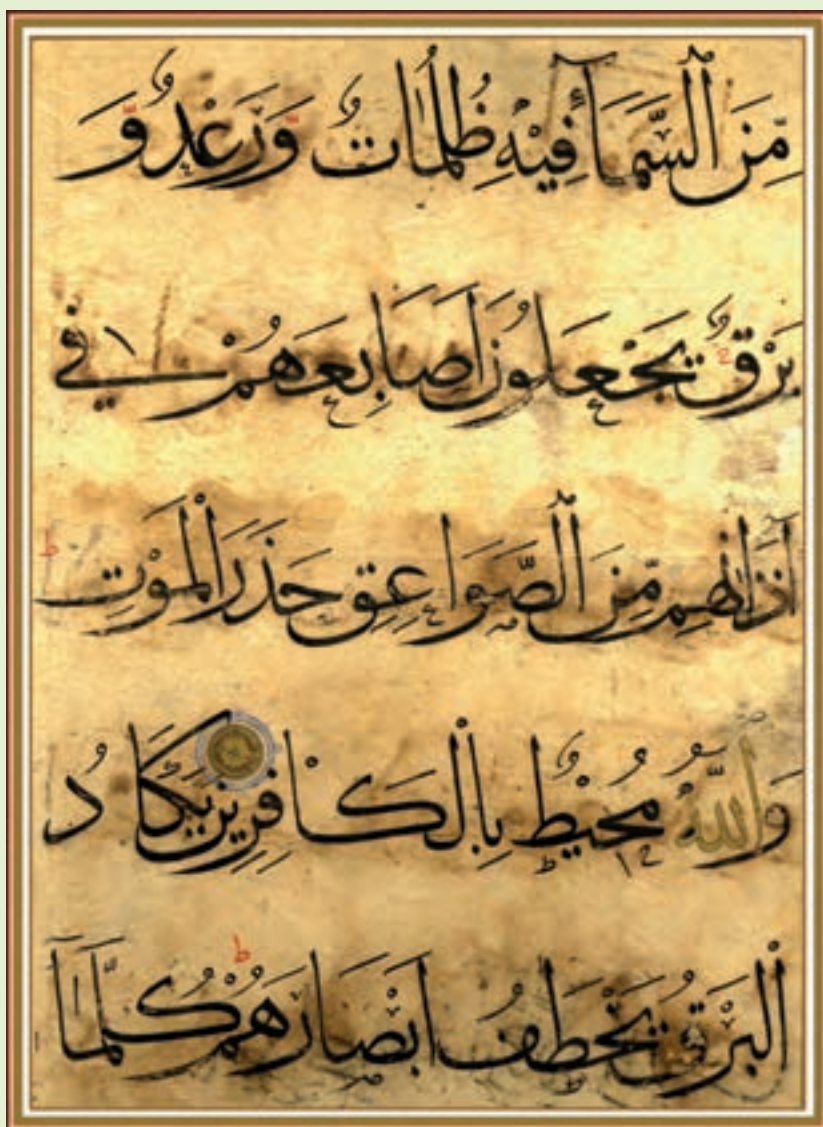 مِّنَ ٱلسَّمَآءِ فِيْهِ ظُلُمَاتٌ وَّرَعْدٌ وَّ
بَرْقٌ يَجْعَلُونَ اَصَابِعَهُمْ فِي
اٰذَانِهِم مِّنَ ٱلصَّوَاعِقِ حَذَرَ الْمَوْتِ ط
وَٱللّٰهُ مُحِيْطٌ بِالْكَافِرِينَ يَكَادُ
ٱلْبَرْقُ يَخْطَفُ اَبْصَارَهُمْ ط كُلَّمَآ